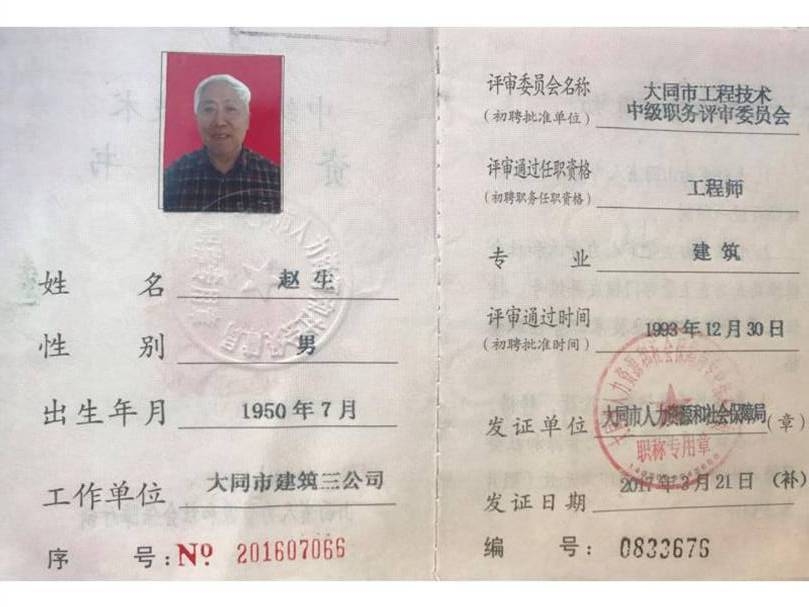 姓 名 赵 生
性 别 男
出生年月 1950 年 7 月
工作单位 大同市建筑三公司
序 号: Nº 201607066
评审委员会名称 大同市工程技术
(初聘批准单位) 中级职务评审委员会
评审通过任职资格 工程师
(初聘职务任职资格)
专 业 建 筑
评审通过时间 1993 年 12 月 30 日
(初聘批准时间)
发证单位 大同市人力资源和社会保障局 (章)
职称专用章
发证日期 2017 年 3 月 21 日 (补)
编 号: 0833676